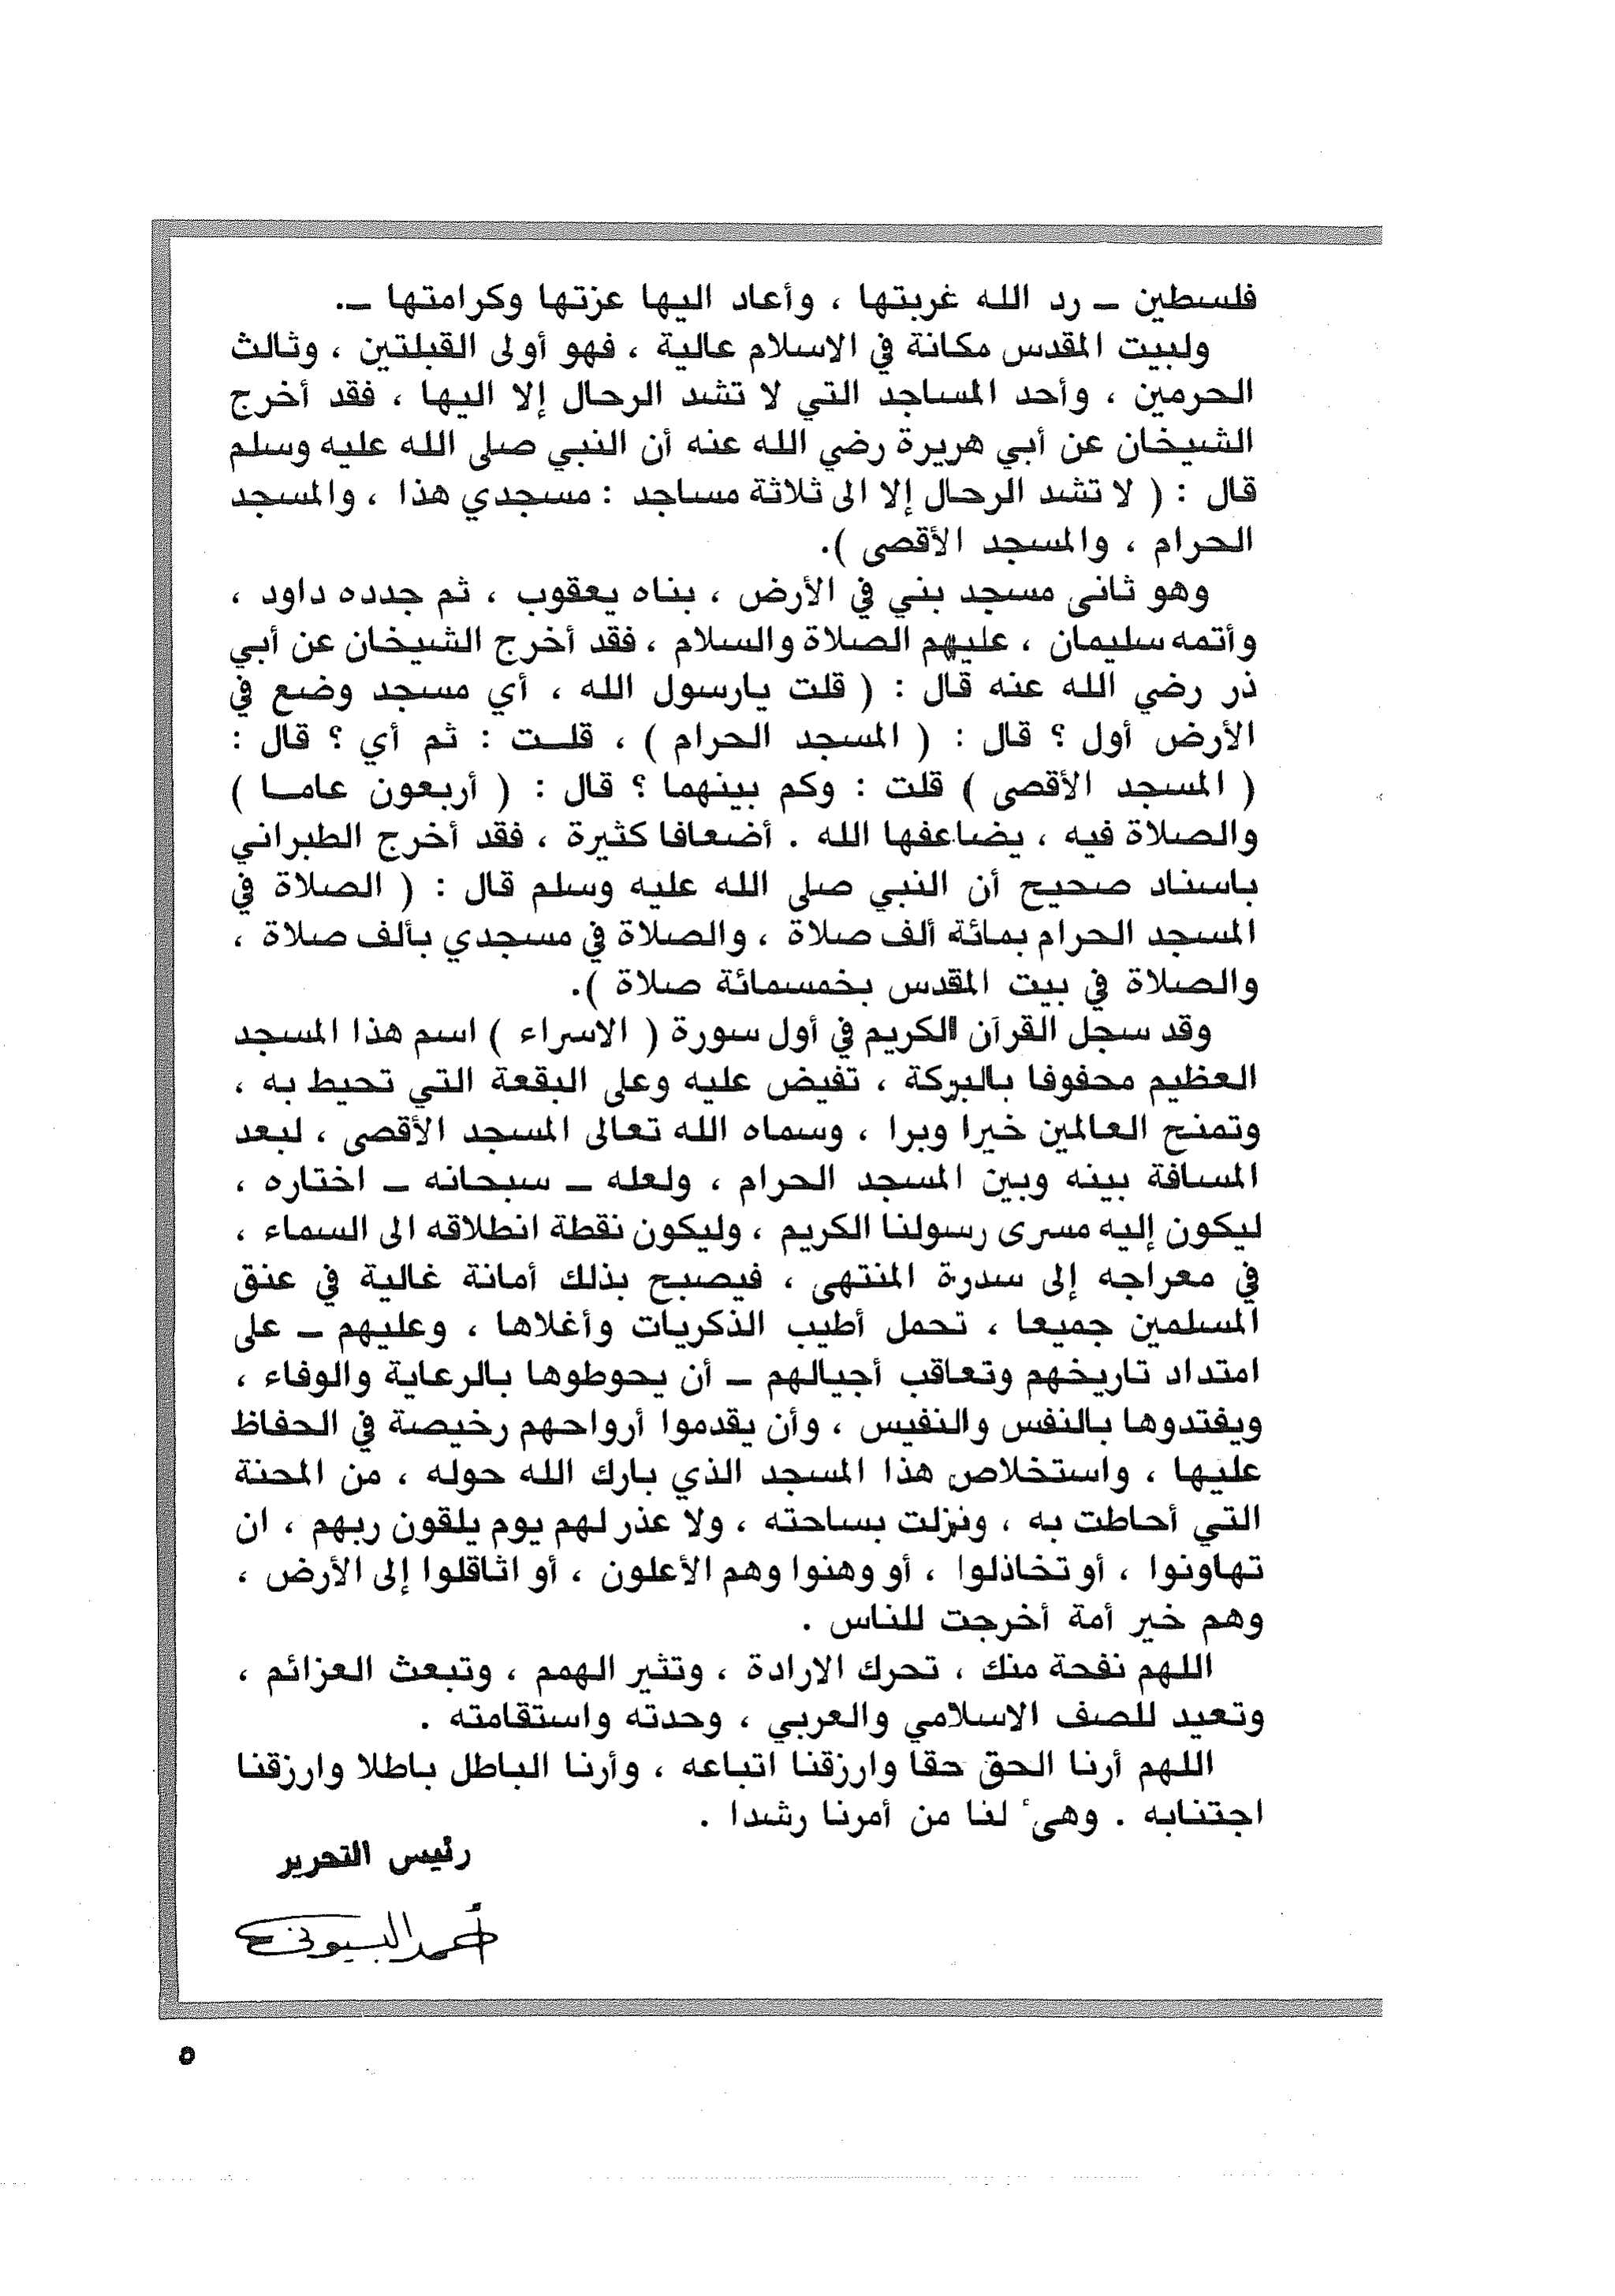 فلسطين ــ رد الله غربتها ، وأعاد اليها عزتها وكرامتها ــ.
ولبيت المقدس مكانة في الاسلام عالية ، فهو أولى القبلتين ، وثالث
الحرمين ، وأحد المساجد التي لا تشد الرحال إلا اليها ، فقد أخرج
الشيخان عن أبي هريرة رضي الله عنه أن النبي صلى الله عليه وسلم
قال : ( لا تشد الرحال إلا الى ثلاثة مساجد : مسجدي هذا ، والمسجد
الحرام ، والمسجد الأقصى ).
وهو ثانى مسجد بني في الأرض ، بناه يعقوب ، ثم جدده داود ،
وأتمه سليمان ، عليهم الصلاة والسلام ، فقد أخرج الشيخان عن أبي
ذر رضي الله عنه قال : ( قلت يارسول الله ، أي مسجد وضع في
الأرض أول ؟ قال : ( المسجد الحرام ) ، قلت : ثم أي ؟ قال :
( المسجد الأقصى ) قلت : وكم بينهما ؟ قال : ( أربعون عاما )
والصلاة فيه ، يضاعفها الله . أضعافا كثيرة ، فقد أخرج الطبراني
باسناد صحيح أن النبي صلى الله عليه وسلم قال : ( الصلاة في
المسجد الحرام بمائة ألف صلاة ، والصلاة في مسجدي بألف صلاة ،
والصلاة في بيت المقدس بخمسمائة صلاة ).
وقد سجل القرآن الكريم في أول سورة ( الاسراء ) اسم هذا المسجد
العظيم محفوفا بالبركة ، تفيض عليه وعلى البقعة التي تحيط به ،
وتمنح العالمين خيرا وبرا ، وسماه الله تعالى المسجد الأقصى ، لبعد
المسافة بينه وبين المسجد الحرام ، ولعله ــ سبحانه ــ اختاره ،
ليكون إليه مسرى رسولنا الكريم ، وليكون نقطة انطلاقه الى السماء ،
في معراجه إلى سدرة المنتهى ، فيصبح بذلك أمانة غالية في عنق
المسلمين جميعا ، تحمل أطيب الذكريات وأغلاها ، وعليهم ــ على
امتداد تاريخهم وتعاقب أجيالهم ــ أن يحوطوها بالرعاية والوفاء ،
ويفتدوها بالنفس والنفيس ، وأن يقدموا أرواحهم رخيصة في الحفاظ
عليها ، واستخلاص هذا المسجد الذي بارك الله حوله ، من المحنة
التي أحاطت به ، ونزلت بساحته ، ولا عذر لهم يوم يلقون ربهم ، ان
تهاونوا ، أو تخاذلوا ، أو وهنوا وهم الأعلون ، أو اثاقلوا إلى الأرض ،
وهم خير أمة أخرجت للناس .
اللهم نفحة منك ، تحرك الارادة ، وتثير الهمم ، وتبعث العزائم ،
وتعيد للصف الاسلامي والعربي ، وحدته واستقامته .
اللهم أرنا الحق حقا وارزقنا اتباعه ، وأرنا الباطل باطلا وارزقنا
اجتنابه . وهىء لنا من أمرنا رشدا .
رئيس التحرير
أحمد البسيوني
٥